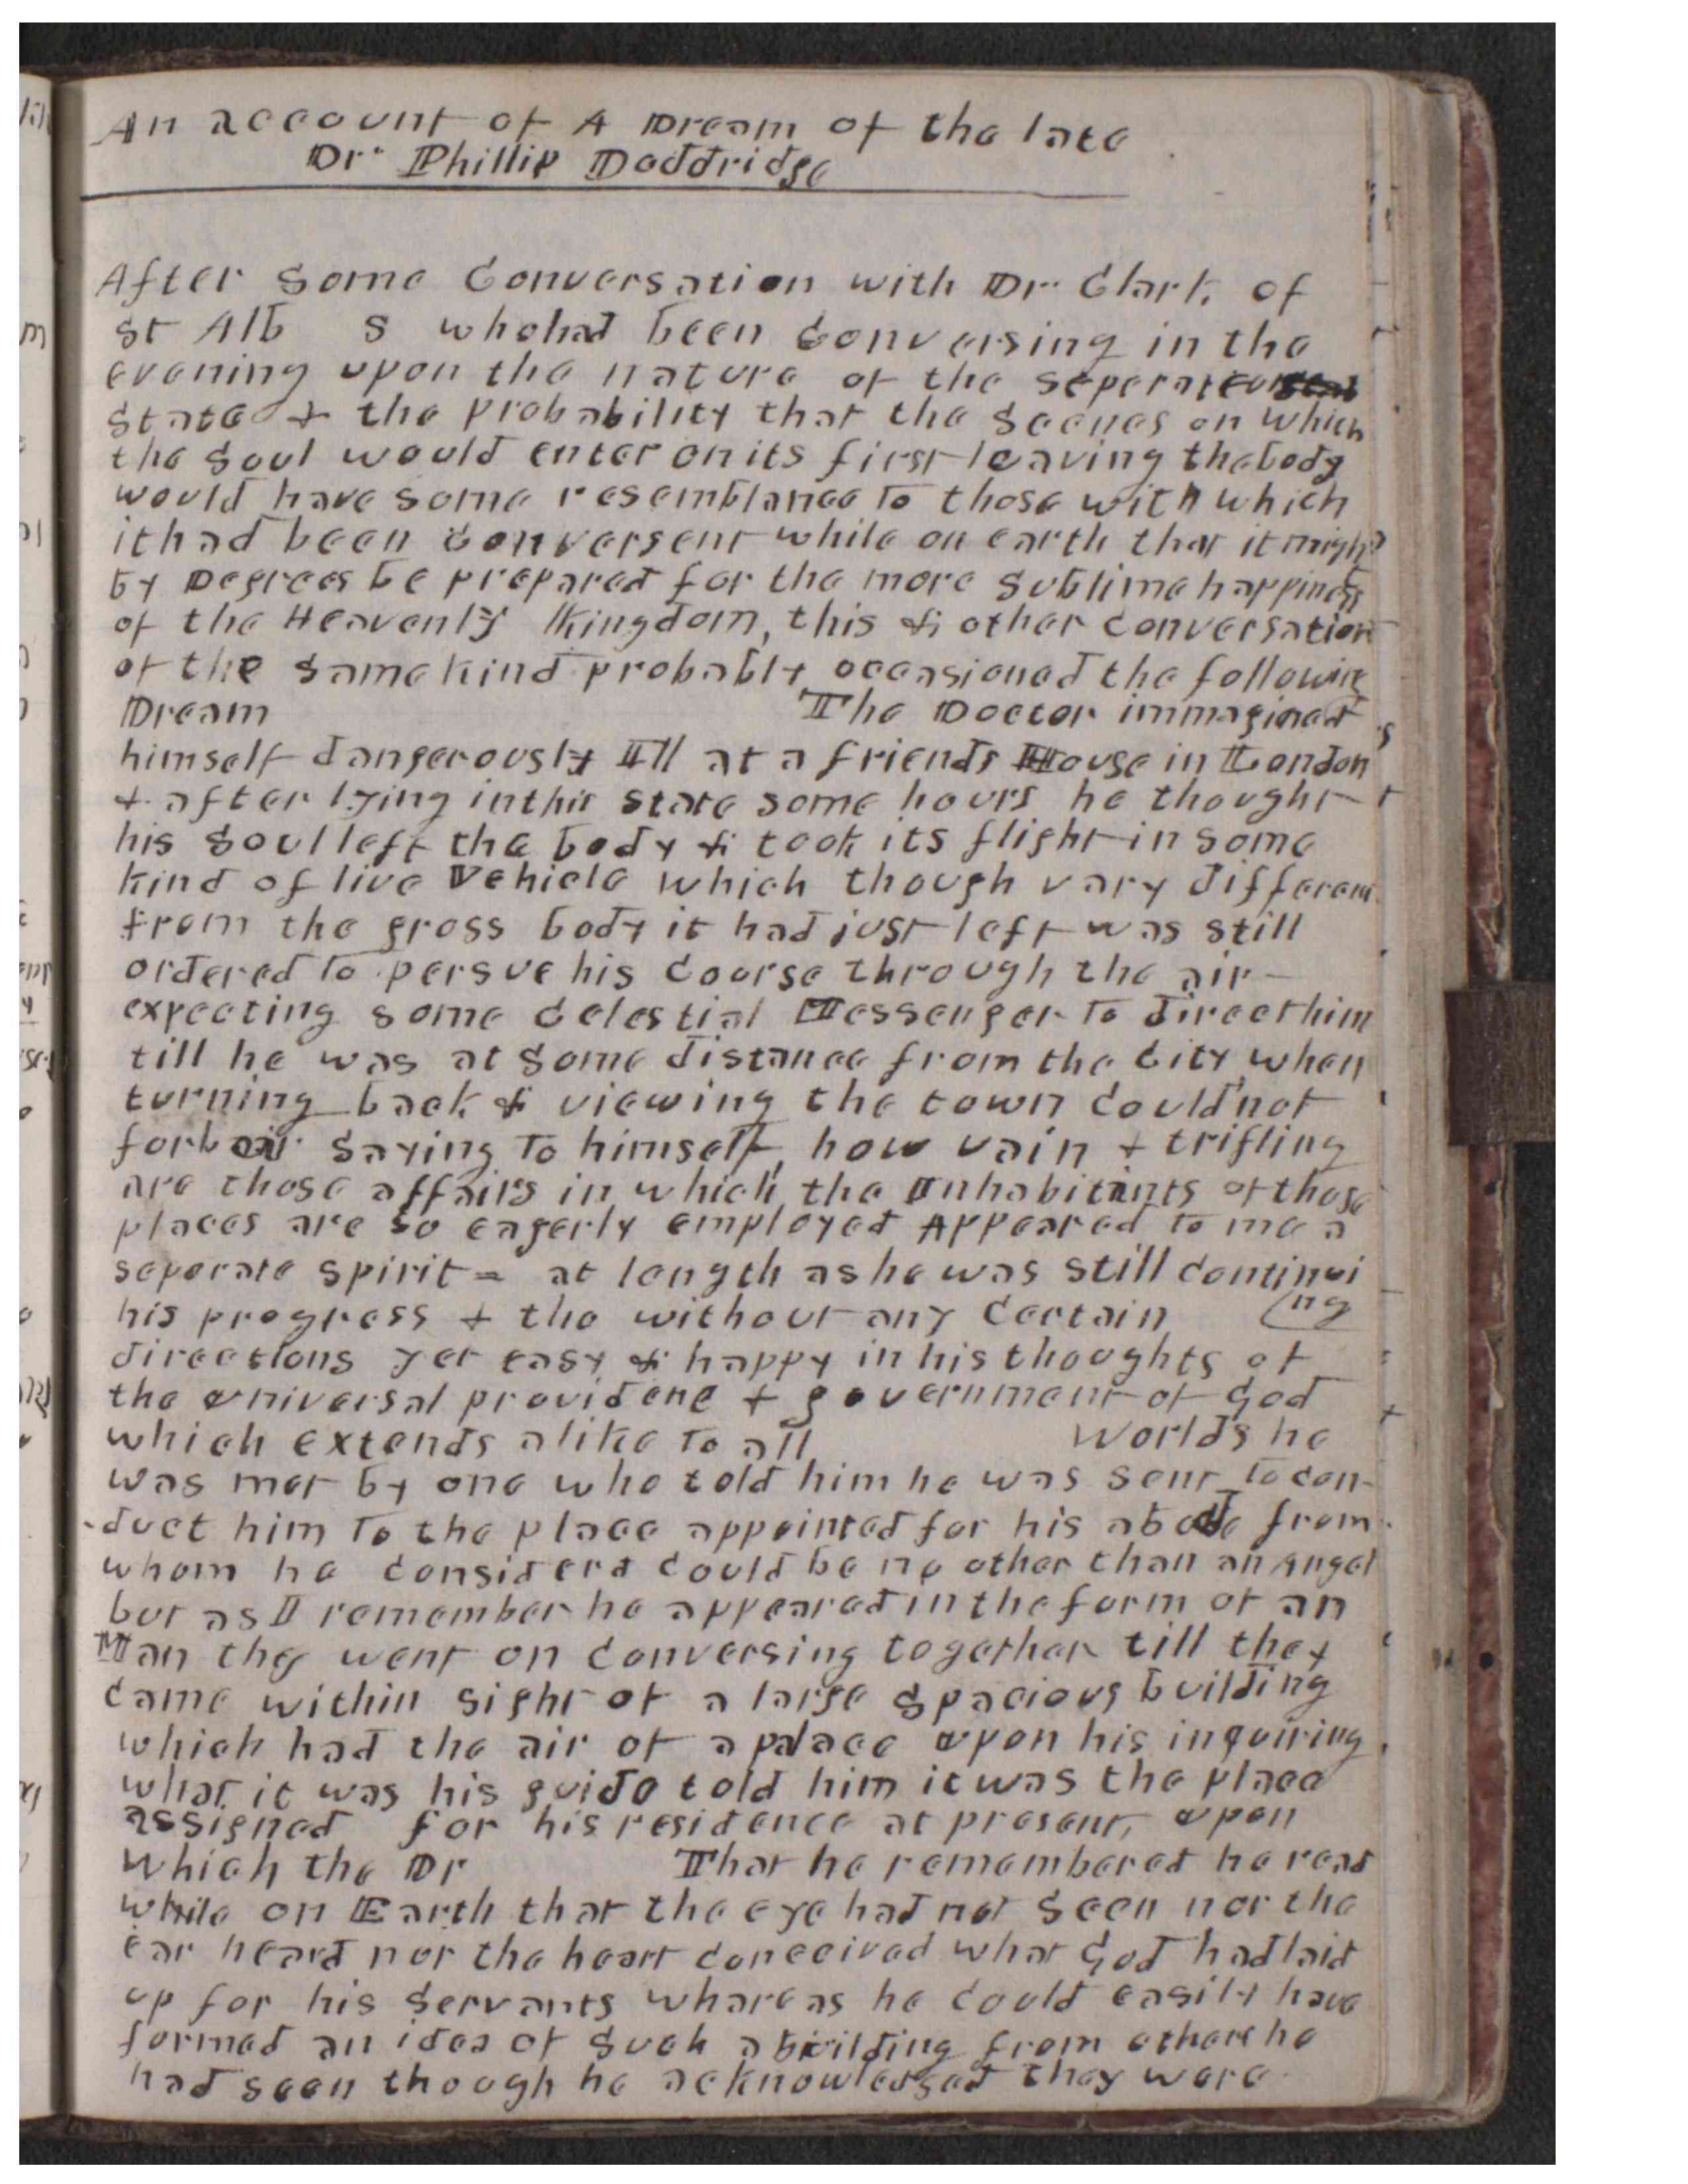 An account of A Dream of the late
Dr. Phillip Doddridge
After Some Conversation with Dr. Clark, of
St Alb s who had been Conversing in the
evening upon the nature of the Seperate
State & the Probability that the Scenes on which
the Soul would enter on its first leaving the body
would have some resemblance To those with which
it had been Conversent while on earth that it might
by Degrees be prepared for the more Sublime happiness
of the Heavenly Kingdom, this & other Conversation
of the Same kind probably occasioned the following
Dream The Doctor immagined
himself dangerously Ill at a friends House in London
& after lying in this State some hours he thought
his Soul left the body & took its flight in some
kind of live Vehicle which though vary different
from the gross body it had just left was still
ordered To persue his Course through the air
expecting some Celestial Messenger To direct him
till he was at Some distance from the City when
turning back & viewing the town Could not
forbair Saying To himself, how vain & trifling
are those affairs in which the Inhabitants of those
places are so eagerly employed Appeared to me a
seperate spirit = at length as he was still Continui
his progress & tho without any Certain (ng
directions yet easy & happy in his thoughts of
the universal providene & government of God
which extends alike To all Worlds he
was met by one who told him he was Sent To Con-
-duct him To the place appointed for his abode from
whom he Considerd Could be no other than an Angel
but as I remember he appeared in the form of an
Man they went on Conversing together till they
Came within sight of a large Spacious building
which had the air of a palace upon his inquiring
what it was his guide told him it was the place
assigned for his residence at present, upon
which the Dr That he remembered he read
while on Earth that the eye had not Seen nor the
ear heard nor the heart Conceived what God had laid
up for his Servants whareas he Could easily have
formed an idea of Such a building from others he
had seen though he acknowledged they were